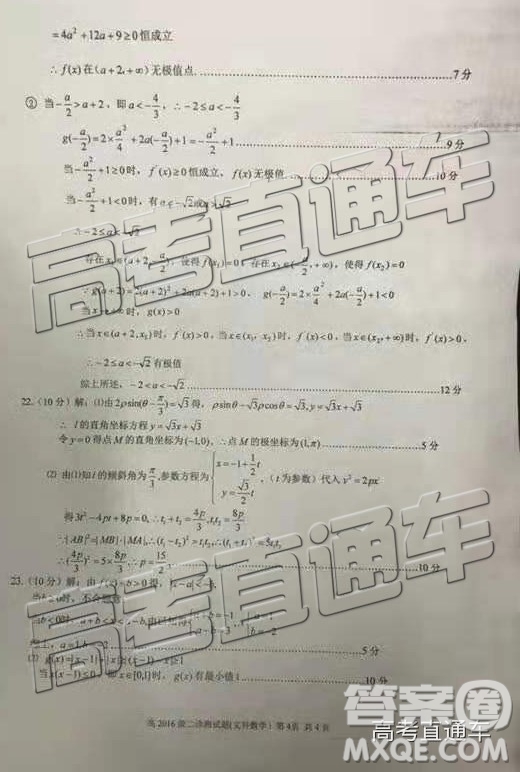 =4a²+12a+9≥0恒成立
∴f(x)在(a+2,+∞)无极值点.……7分
② 当-a/2>a+2，即a<-4/3，∴-2≤a<-4/3
g(-a/2)=2×a²/4+2a(-a/2)+1=-a²/2+1……9分
当-a²/2+1≥0时，f'(x)≥0恒成立，f(x)无极值……10分
当-a²/2+1<0时，有
∴-2≤a<-√2
存在x₁∈(a+2,-a/2)，使得f'(x₁)=0，存在x₂∈(-a/2,+∞)，使得f'(x₂)=0
∵g(a+2)=2(a+2)²+2a(a+2)+1>0， g(-a/2)=2×a²/4+2a(-a/2)+1<0
∴当x∈(a+2,x₁)时，f'(x)>0，当x∈(x₁,x₂)时，f'(x)<0，当x∈(x₂,+∞)时，f'(x)>0，
∴-2≤a<-√2有极值
综上所述，-2<a<-√2……12分
22.（10分）解：(1)由2ρsin(θ-π/3)=√3得，ρsinθ-√3ρcosθ=√3,y=√3x+√3
∴ l的直角坐标方程y=√3x+√3
令y=0得点M的直角坐标为(-1,0)，∴点M的极坐标为(1,π)……5分
(2) 由(1)知l的倾斜角为π/3，参数方程为{x=-1+1/2t y=√3/2t，（t为参数）代入y²=2px
得3t²-4pt+8p=0,∴t₁+t₂=4p/3,t₁t₂=8p/3
∵|AB|²=|MB|·|MA|,∴(t₁-t₂)²=t₁t₂,∴(t₁+t₂)²=5t₁t₂
∴(4p/3)²=5×8p/3,∴p=15/2……10分
23.（10分）解：由f(x)+b>0得，|x-a|<-b,
当b≥0时，不合题意
当b<0时，
b=-2
a=1,b=-2……5分
(2) g(x)=|x-1|+|x|≥|(x-1)-x|≥1
当x(x-1)≤0时，即x∈[0,1]时，g(x)有最小值1……10分
高2016级二诊测试题(文科数学) 第4页 共4页
高考直通车
高考直通车
高考直通车
MXQE.COM
答案圈
高考直通车